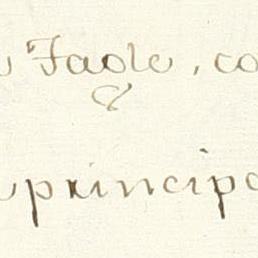 Faole, co
principa